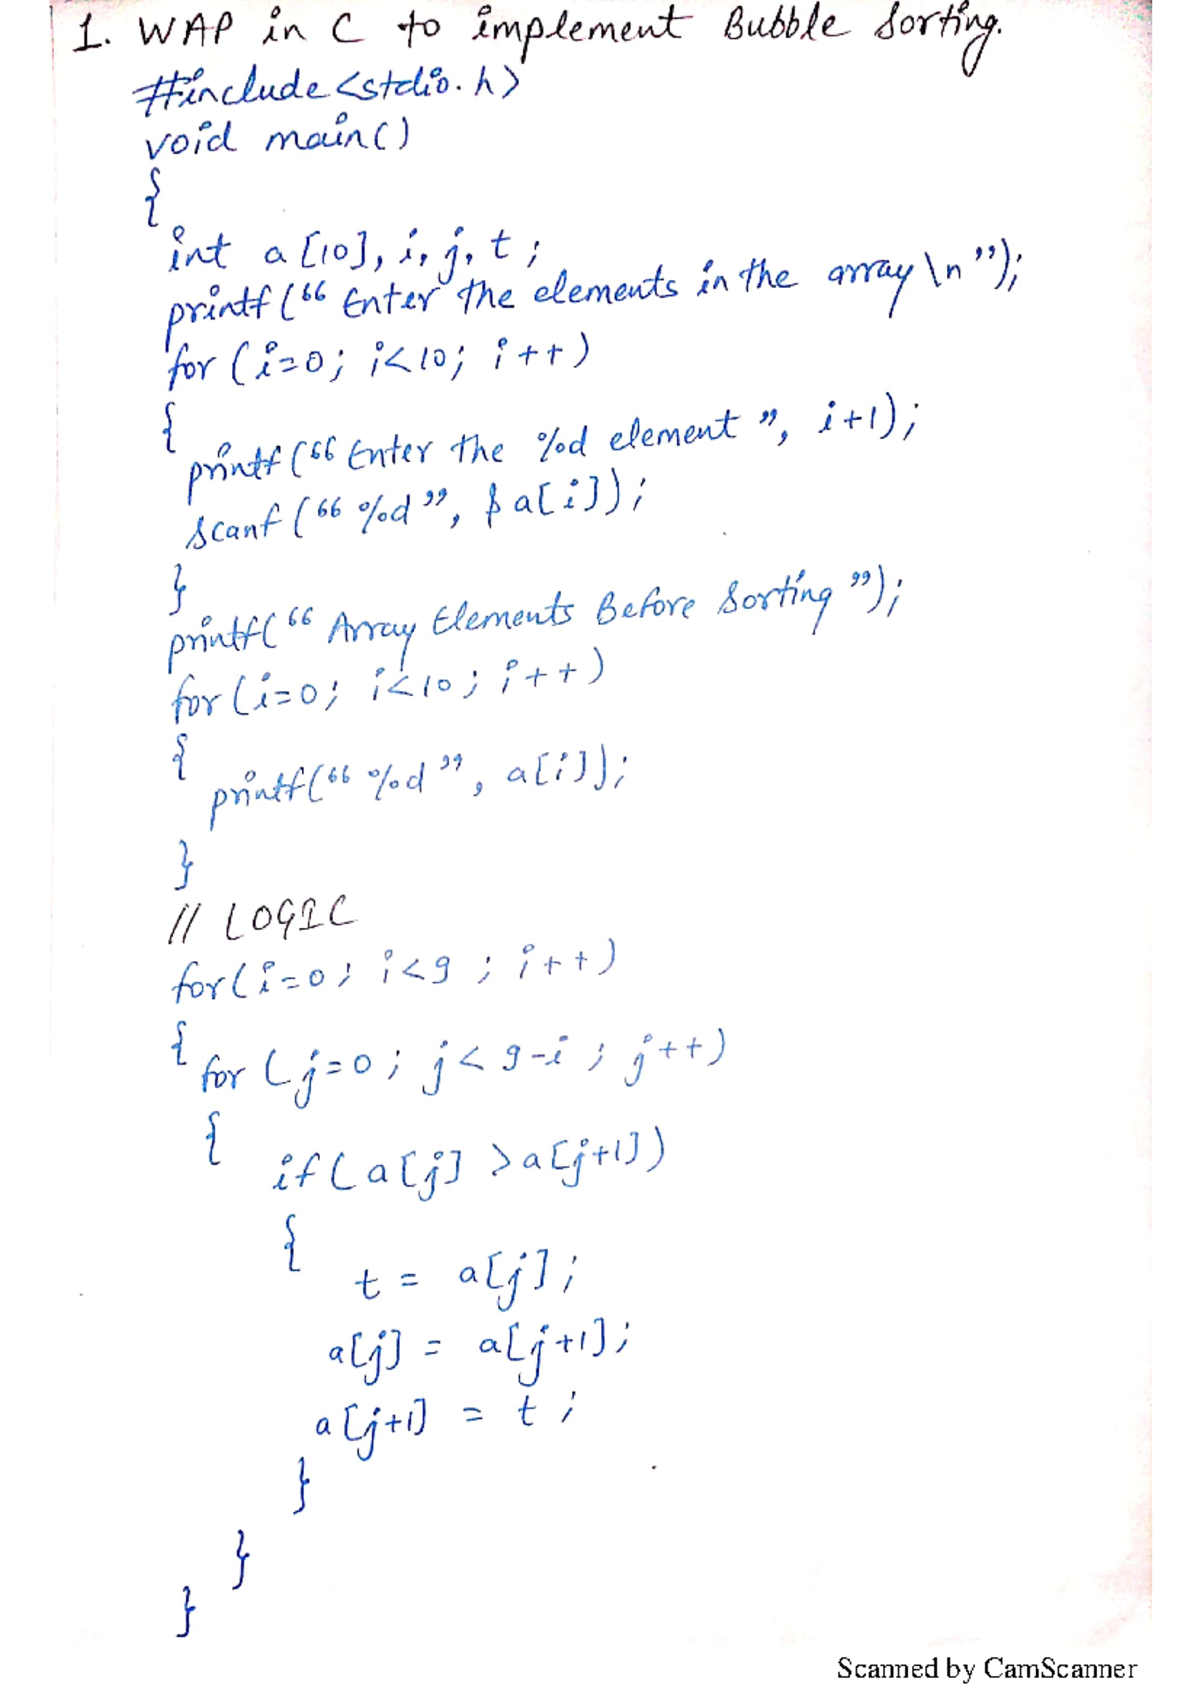 1. WAP in C to implement Bubble Sorting.
#include <stdio.h>
void main()
{
int a[10], i, j, t;
printf(“Enter the elements in the array \n”);
for (i=0; i<10; i++)
{
printf(“Enter the %d element”, i+1);
scanf(“%d”, &a[i]);
}
printf(“Array Elements Before Sorting”);
for (i=0; i<10; i++)
{
printf(“%d”, a[i]);
}
// LOGIC
for(i=0; i<9; i++)
{
for (j=0; j<9-i; j++)
{
if(a[j] >a[j+1])
{
t = a[j];
a[j] = a[j+1];
a[j+1] = t;
}
}
}
Scanned by CamScanner